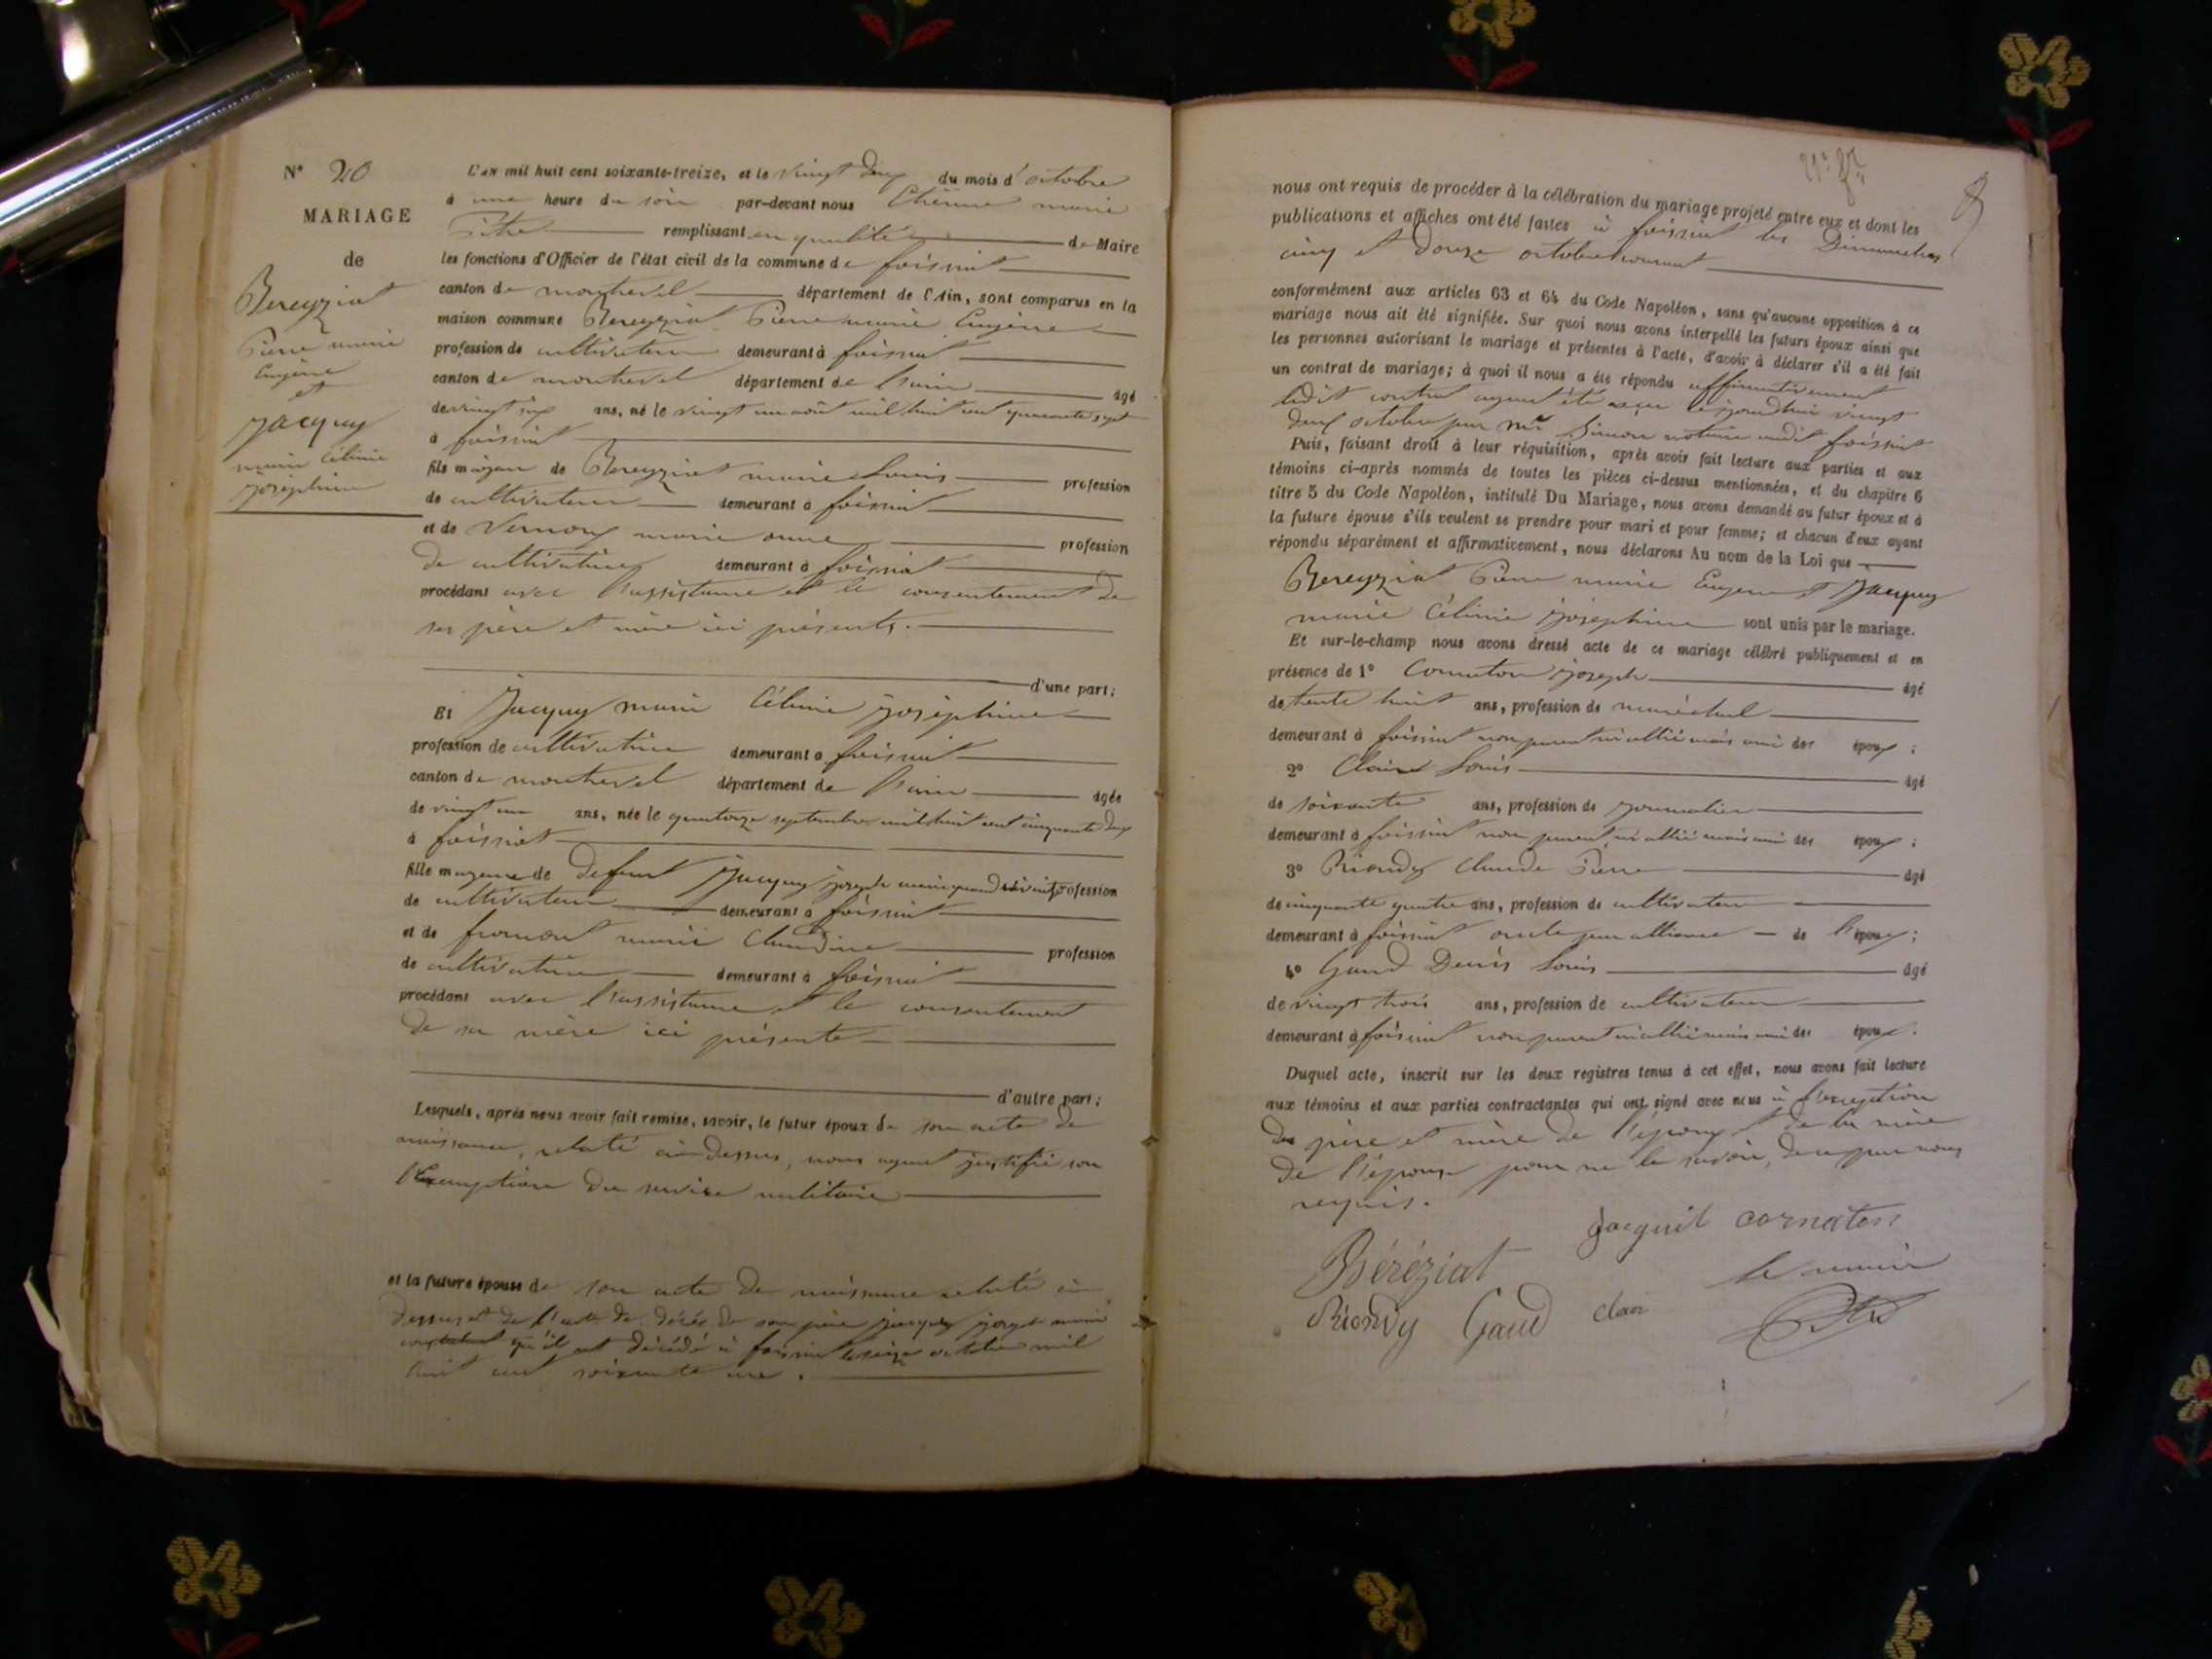 N° 20
MARIAGE
de
Bereyziat
Pierre marie
Eugène
et
Jacquy
marie Célinie
joséphine
L'an mil huit cent soixante-treize, et le vingt deux du mois d'octobre
à une heure du soir par-devant nous Etienne marie
remplissant en qualité de Maire
les fonctions d'Officier de l'état civil de la commune de foissiat
canton de montrevel département de l'Ain, sont comparus en la
maison commune Bereyziat Pierre marie Eugène
profession de cultivateur demeurant à foissiat
canton de montrevel département de l'ain âgé
de vingt six ans, né le vingt un août mil huit cent quarante sept
à foissiat
fils majeur de Bereyziat marie Louis profession
de cultivateur demeurant à foissiat
et de Vernoux marie anne profession
de cultivatrice demeurant à foissiat
procédant avec l'assistance et le consentement de
ses père et mère ici présents.
d'une part;
Et Jacquy marie Célinie joséphine
profession de cultivatrice demeurant à foissiat
canton de montrevel département de l'ain âgée
de vingt un ans, née le quatorze septembre mil huit cent cinquante deux
à foissiat
fille majeure de Defunt Jacquy joseph marie quand vivait profession
de cultivateur demeurant à foissiat
et de fromont marie Claudine profession
de cultivatrice demeurant à foissiat
procédant avec l'assistance et le consentement
de sa mère ici présente
d'autre part;
Lesquels, après nous avoir fait remise, savoir, le futur époux de son acte de
naissance, relaté ci-dessus, nous ayant justifié son
Exemption du service militaire
et la future épouse de son acte de naissance relaté ci-
dessus et de l'acte de décés de son père jacquy joseph marie
constatant qu'il est décédé à foissiat le seize octobre mil
huit cent soixante une.
nous ont requis de procéder à la célébration du mariage projeté entre eux et dont les
publications et affiches ont été faites à foissiat les Dimanches
cinq et douze octobre courant
conformément aux articles 63 et 64 du Code Napoléon, sans qu'aucune opposition à ce
mariage nous ait été signifiée. Sur quoi nous avons interpellé les futurs époux ainsi que
les personnes autorisant le mariage et présentes à l'acte, d'avoir à déclarer s'il a été fait
un contrat de mariage; à quoi il nous a été répondu affirmativement
ledit contrat ayant été reçu cejourd'hui vingt
deux octobre par Me Simon notaire audit foissiat
Puis, faisant droit à leur réquisition, après avoir fait lecture aux parties et aux
témoins ci-après nommés de toutes les pièces ci-dessus mentionnées, et du chapitre 6
titre 5 du Code Napoléon, intitulé Du Mariage, nous avons demandé au futur époux et à
la future épouse s'ils veulent se prendre pour mari et pour femme; et chacun d'eux ayant
répondu séparément et affirmativement, nous déclarons Au nom de la Loi que
Bereyziat Pierre marie Eugène et Jacquy
marie Célinie joséphine sont unis par le mariage.
Et sur-le-champ nous avons dressé acte de ce mariage célébré publiquement et en
présence de 1° Cornaton joseph âgé
de trente huit ans, profession de maréchal
demeurant à foissiat non parent ni allié mais ami des époux ;
2° Clair Louis âgé
de soixante ans, profession de journalier
demeurant à foissiat non parent ni allié mais ami des époux ;
3° Riondy Claude Pierre âgé
de cinquante quatre ans, profession de cultivateur
demeurant à foissiat oncle par alliance de l'époux ;
4° Gaud Denis Louis âgé
de vingt trois ans, profession de cultivateur
demeurant à foissiat non parent ni allié mais ami des époux.
Duquel acte, inscrit sur les deux registres tenus à cet effet, nous avons fait lecture
aux témoins et aux parties contractantes qui ont signé avec nous à l'exception
des père et mère de l'époux et de la mère
de l'épouse pour ne le savoir, de ce par nous
requis.
jacquit cornaton
Béréziat le maire
Riondy Gaud clair